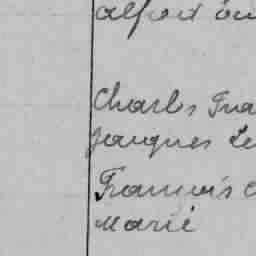 alfred
Charles Fra
Jacques Le
Francois
Marie